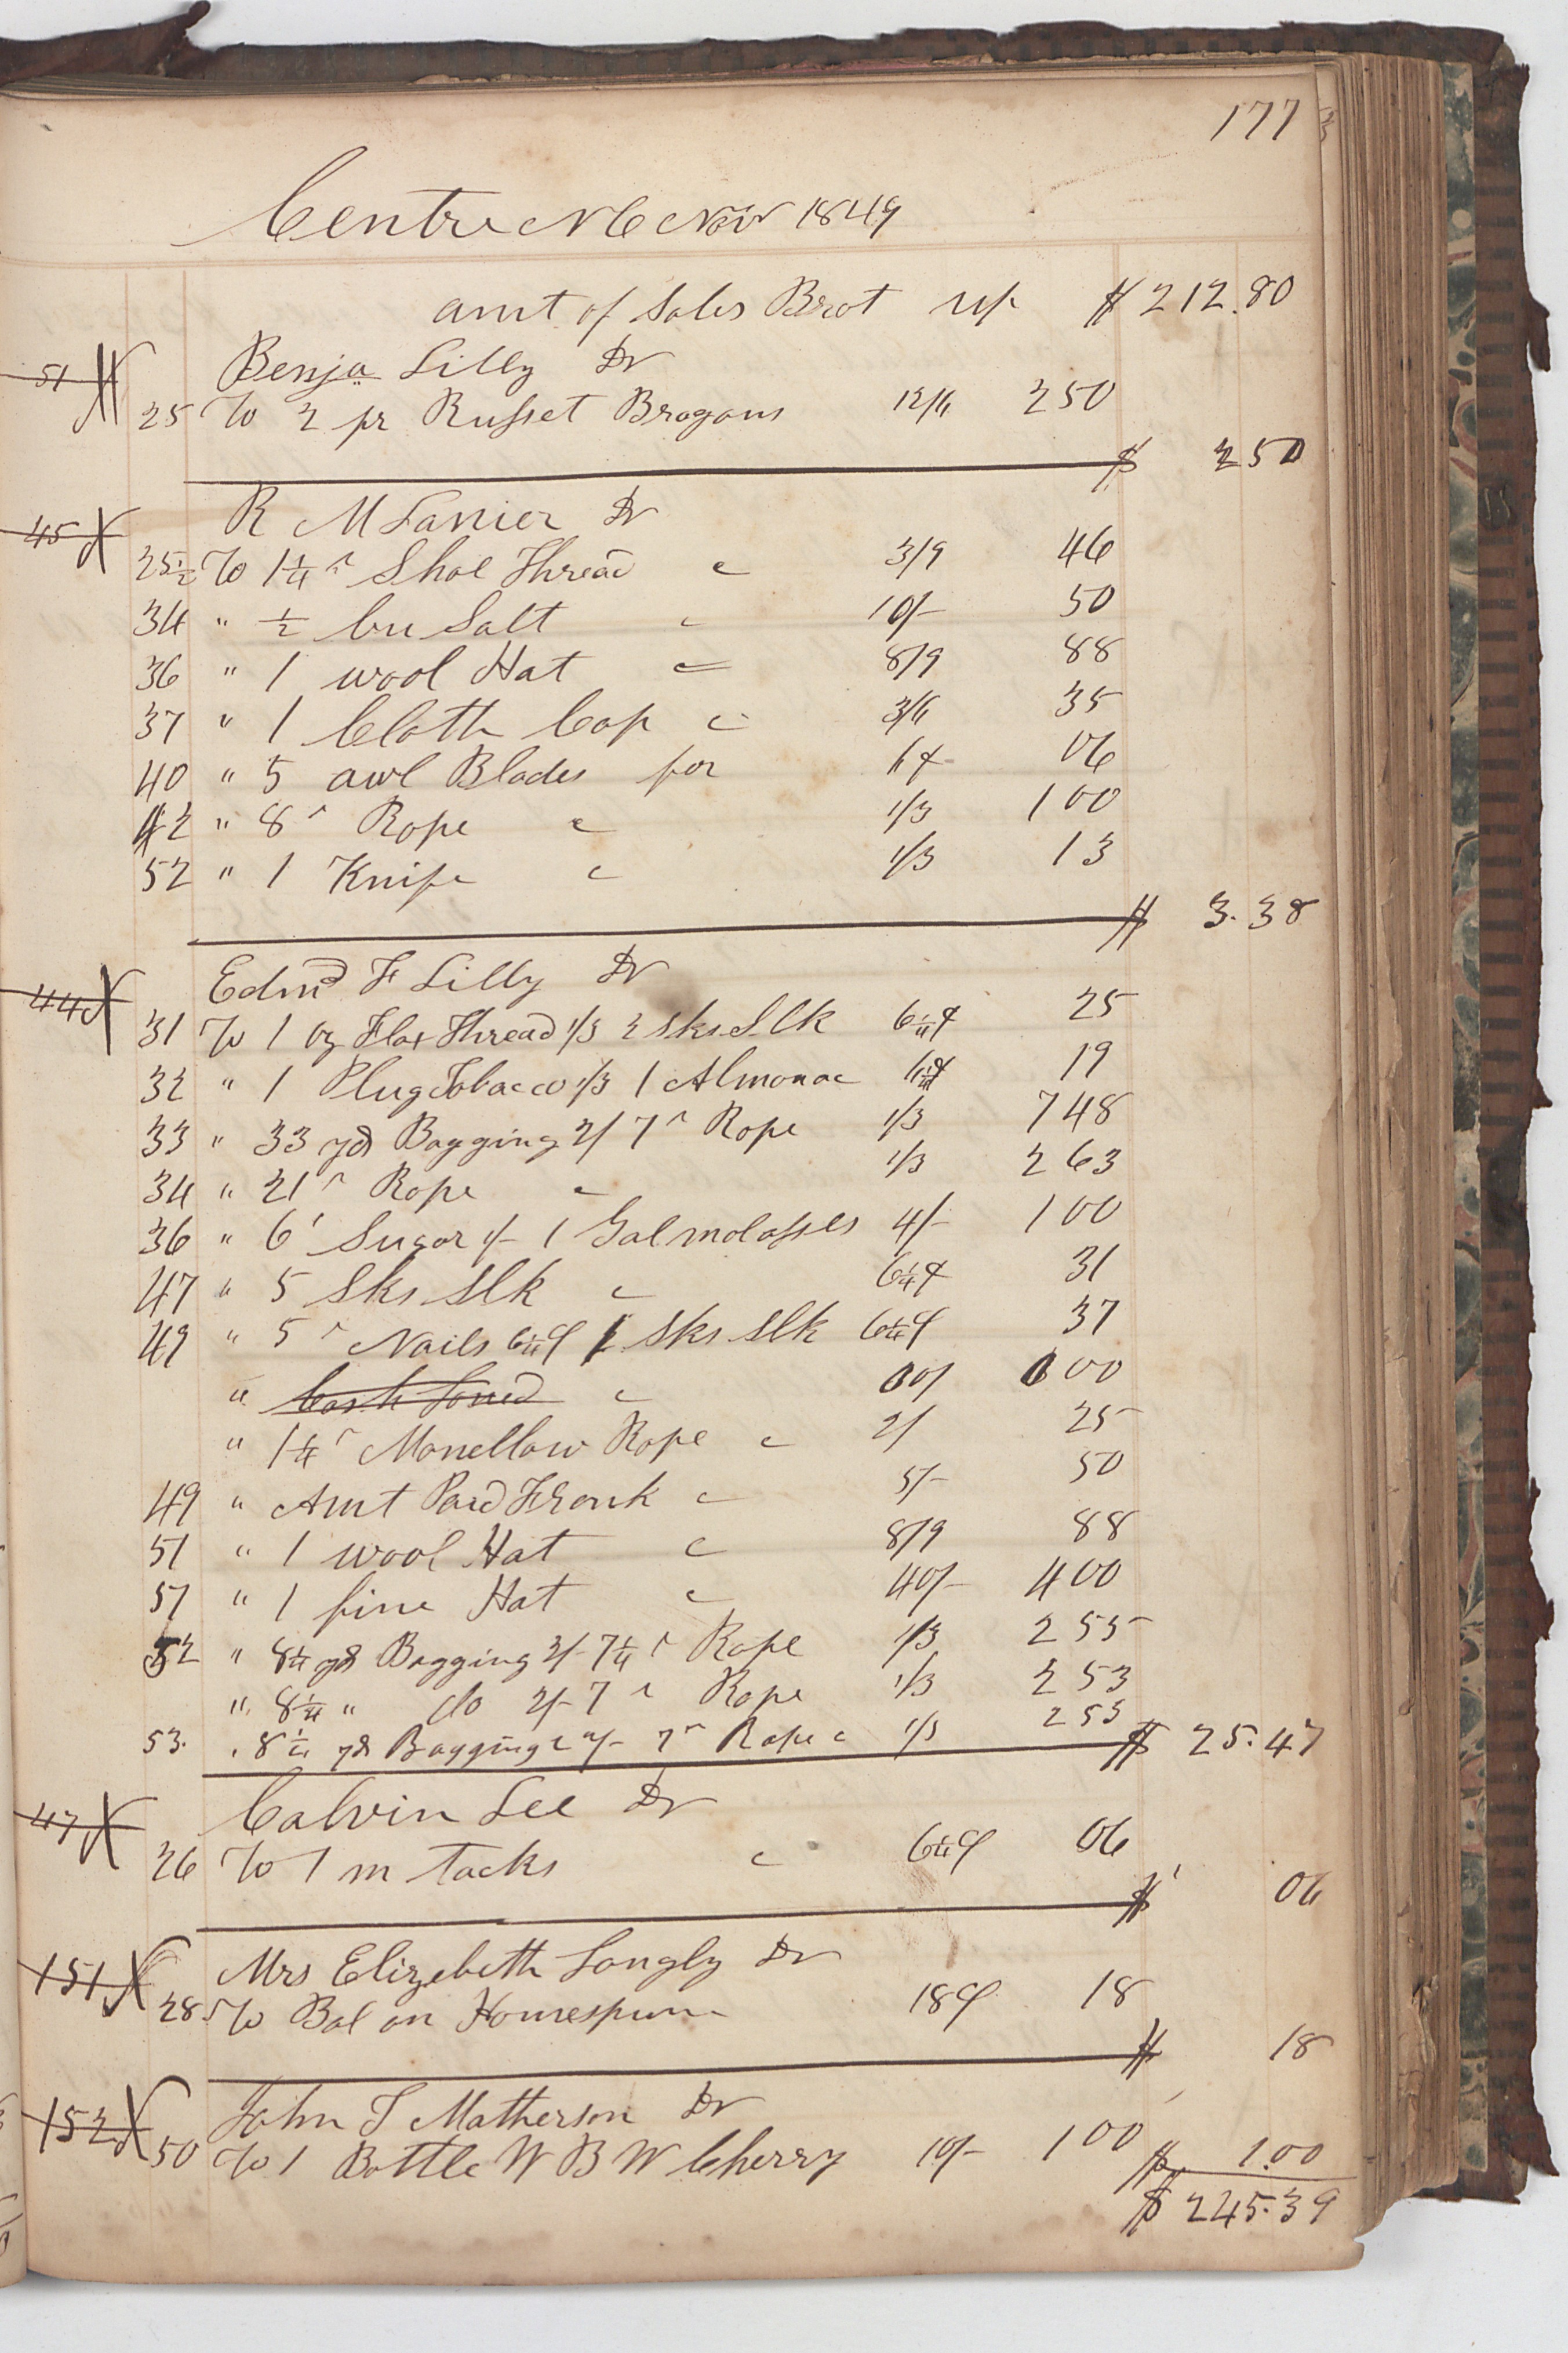 177
Centre NC Nov 1849
amt of Sales Brot up $ 212.80
51 Benja Lilly Dr
25 To 2 pr Russet Brogans 12/6 2 50
$ 2 50
45 R M Lanier Dr
25½ To 1¼ " Shoe Thread c 3/9 46
34 " ½ bu Salt c 10/- 50
36 " 1 wool Hat c 8/9 88
37 " 1 Cloth Cap c 3/6 35
40 " 5 awl Blades for 6¢ 06
42 " 8 " Rope c 1/3 1 00
52 " 1 Knife c 1/3 13
$ 3.38
44 Edmd F Lilly Dr
31 To 1 oz Flax Thread 1/3 2 Sks Silk 6¼¢ 25
32 " 1 Plug Tobacco 1/3 1 Almanac 6¼¢ 19
33 " 33 yds Bagging 2/ 7 " Rope 1/3 7 48
34 " 21 " Rope c 1/3 2 63
36 " 6 " Sugar 1/- 1 Gal molasses 4/- 1 00
47 " 5 Sks Slk c 6¼¢ 31
49 " 5 " Nails 6¼¢ 1 Sks Slk 6¼¢ 37
" Cash Loned c 00/ 0 00
" 1¼ " Manellow Rope c 2/ 25
49 " Amt Paid Frank c 5/- 50
51 " 1 wool Hat c 8/9 88
51 " 1 fine Hat c 40/- 4 00
52 " 8¼ yds Bagging 2/- 7¼ " Rope 1/3 2 55
" 8¼ " do 2/- 7 " Rope 1/3 2 53
53. " 8¼ yds Bagging c 2/- 7 " Rope c 1/3 2 53 $ 25.47
47 Calvin Lee Dr
26 To 1 m tacks c 6¼¢ 06
$ 06
151 Mrs Elizebeth Langly Dr
28 To Bal on Homespun 18¢ 18
$ 18
152 John T Matherson Dr
50 To 1 Bottle W B W Cherry 10/- 1 00 $ 1.00
$ 245.39